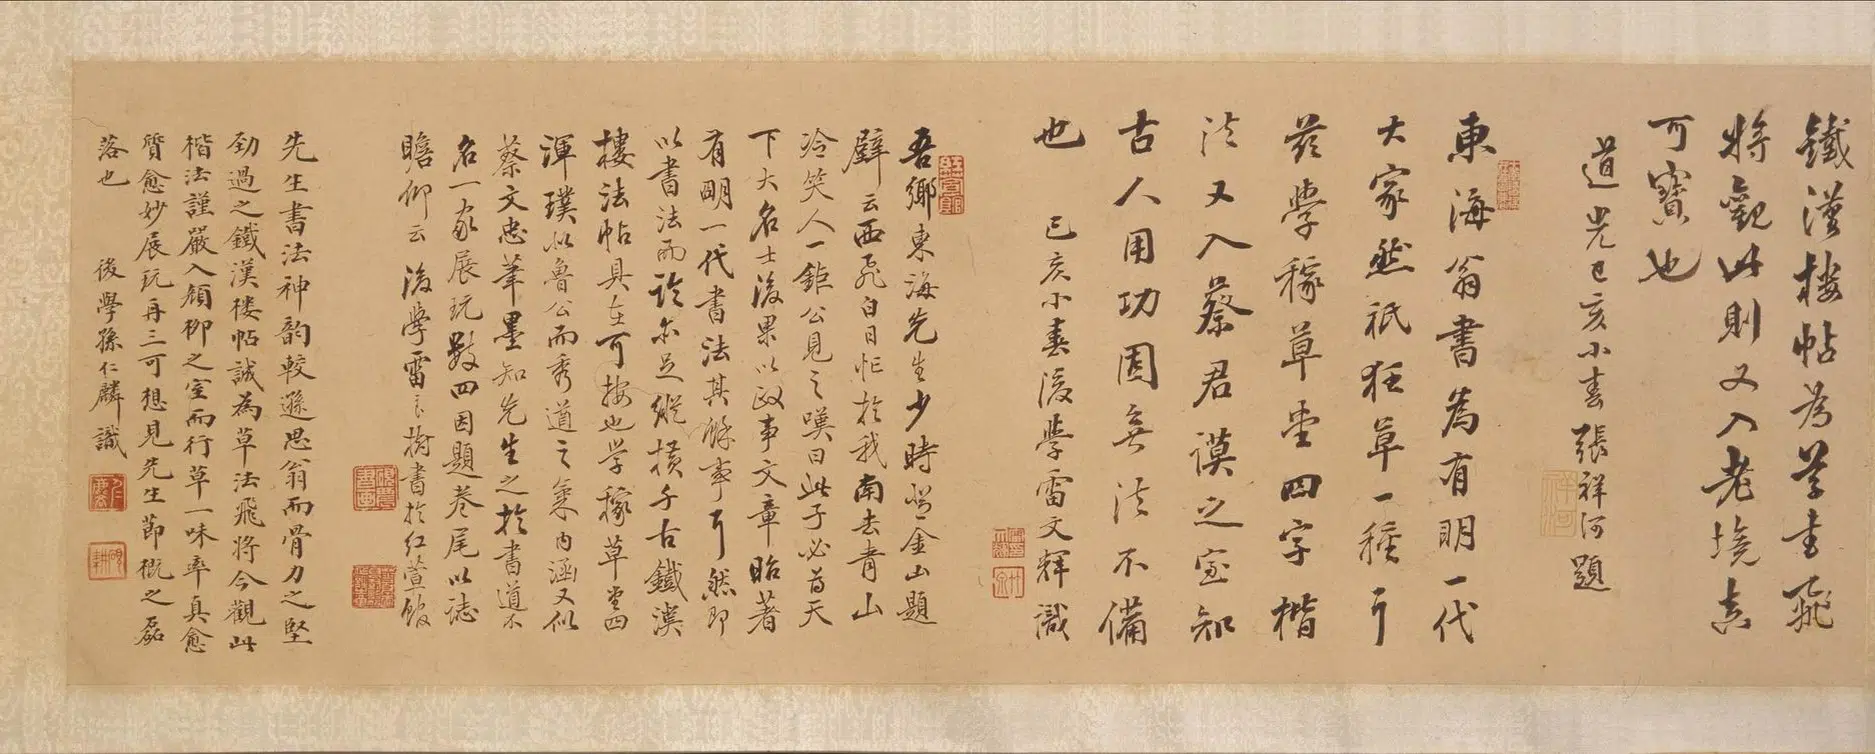 鐵漢樓帖為學書飛
將觀此則又入老境真
可寶也
道光己亥小春張祥河題
東海翁書為有明一代
大家然祇狂草一種耳
茲學稼草堂四字楷
法又入蔡君謨之室知
古人用功固無法不備
也
己亥小春後學雷文輝識
吾鄉東海先生少時登金山題
壁云西飛白日忙於我南去青山
冷笑人一鉅公見之嘆曰此子必為天
下大名士後果以政事文章昭著
有明一代書法其餘事耳然即
以書法而論亦足縱橫千古鐵漢
樓法帖具在可按也學稼草堂四
渾璞似魯公而秀道之氣內涵又似
蔡文忠筆墨知先生之於書道不
名一家展玩數四因題卷尾以誌
瞻仰云 後學雷良樹書於紅萱館
先生書法神韵較遜思翁而骨力之堅
勁過之鐵漢樓帖誠為草法飛將今觀此
楷法謹嚴入顏柳之室而行草一味率真愈
質愈妙展玩再三可想見先生節概之磊
落也 後學孫仁麟識
祥河